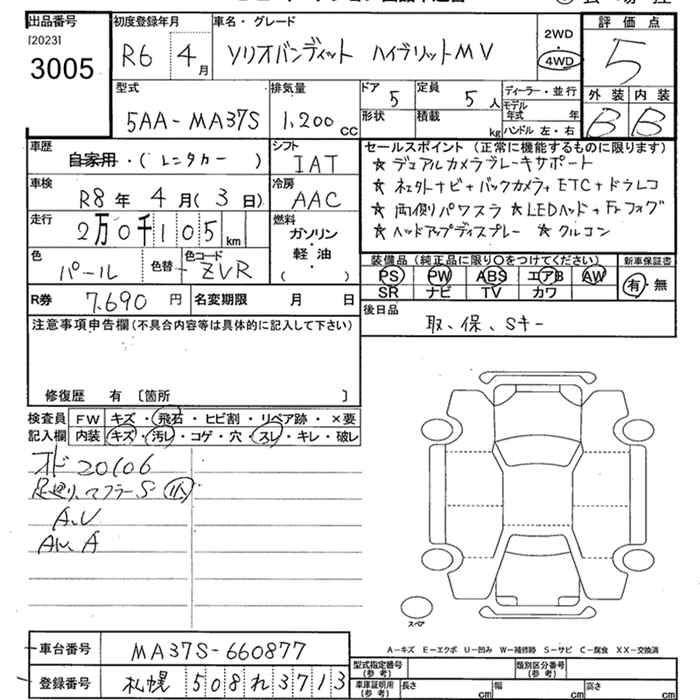 出品番号 初度登録年月 車名・グレード 評価点
[2023] 3005 R6 4月 ソリオバンディット ハイブリットMV 2WD 4WD 5
型式 排気量 ドア 5 定員 5人 ディーラー・並行 外装 内装
5AA-MA37S 1,200cc 形状 積載 kg モデル年式 年 ハンドル 左・右 B B
車歴 シフト セールスポイント(正常に機能するものに限ります)
自家用・(レンタカー) IAT ★デュアルカメラブレーキサポート
車検 冷房 ★ネットナビ+バックカメラ+ETC+ドラレコ
R8年 4月(3日) AAC ★両側パワスラ ★LEDヘッド+Frフォグ
走行 燃料 ★ヘッドアップディスプレー ★クルコン
2万0千105km ガソリン・軽油・( )
色 色替 色コード 装備品(純正品に限り○をつけてください) 新車保証書
パール - ZVR PS PW ABS エアB AW 有・無
SR ナビ TV カワ
R券 7.690円 名変期限 月 日 後日品
注意事項申告欄(不具合内容等は具体的に記入して下さい) 取、保、Sキー
修復歴 有 [箇所 ]
検査員 FW キズ・飛石・ヒビ割・リペア跡・×要
記入欄 内装 キズ・汚レ・コゲ・穴・スレ・キレ・破レ
オド20106
足廻り、マフラーS
A、U
AW、A
スペア
A-キズ E-エクボ U-凹み W-補修跡 S-サビ C-腐食 XX-交換済
車台番号 MA37S-660877 型式指定番号(参考) 類別区分番号(参考)
登録番号 札幌 508れ3713 車庫証明用(参考) 長さ cm 幅 cm 高さ cm